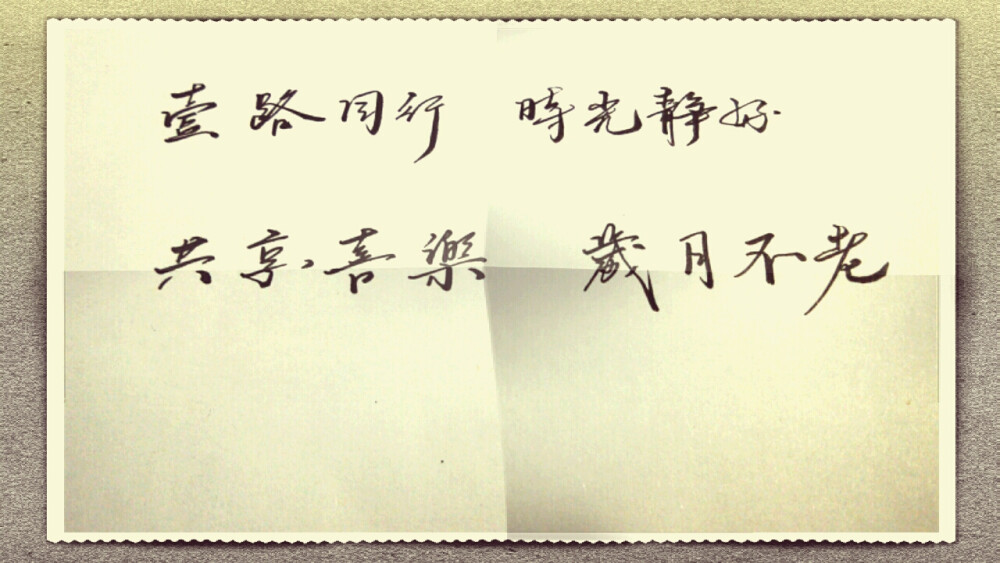 壹路同行 時光静好
共享喜樂 歲月不老